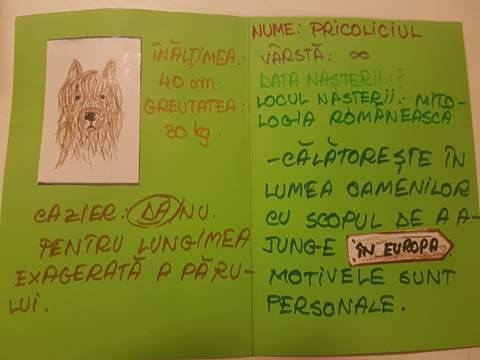 ÎNĂLŢIMEA:
40 cm.
GREUTATEA:
30 kg.
CAZIER: DA/NU.
PENTRU LUNGIMEA
EXAGERATĂ A PĂRU-
LUI.
NUME: PRICOLICIUL
VÂRSTĂ: ∞
DATA NAŞTERII: ?
LOCUL NAŞTERII: MITO-
LOGIA ROMÂNEASCĂ
-CĂLĂTOREŞTE ÎN
LUMEA OAMENILOR
CU SCOPUL DE A A-
JUNGE ÎN EUROPA.
MOTIVELE SUNT
PERSONALE.